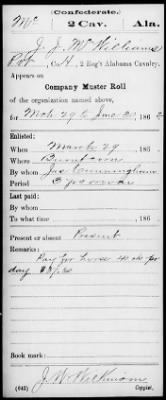 (Confederate.)
Mc 2 Cav. Ala.
J. J. McWilliams
Pvt, Co. A, 2 Reg't Alabama Cavalry.
Appears on
Company Muster Roll
of the organization named above,
for Mch 29 to June 30, 186
Enlisted:
When March 29, 186
Where
By Jas Cunningham
Period 3 yrs or war
Last paid:
By whom
To what time , 186
Present or absent Present
Remarks:
Pay for horse 40 cts per
day
Book mark:
J. W. Wilkinson
(642) Copyist.